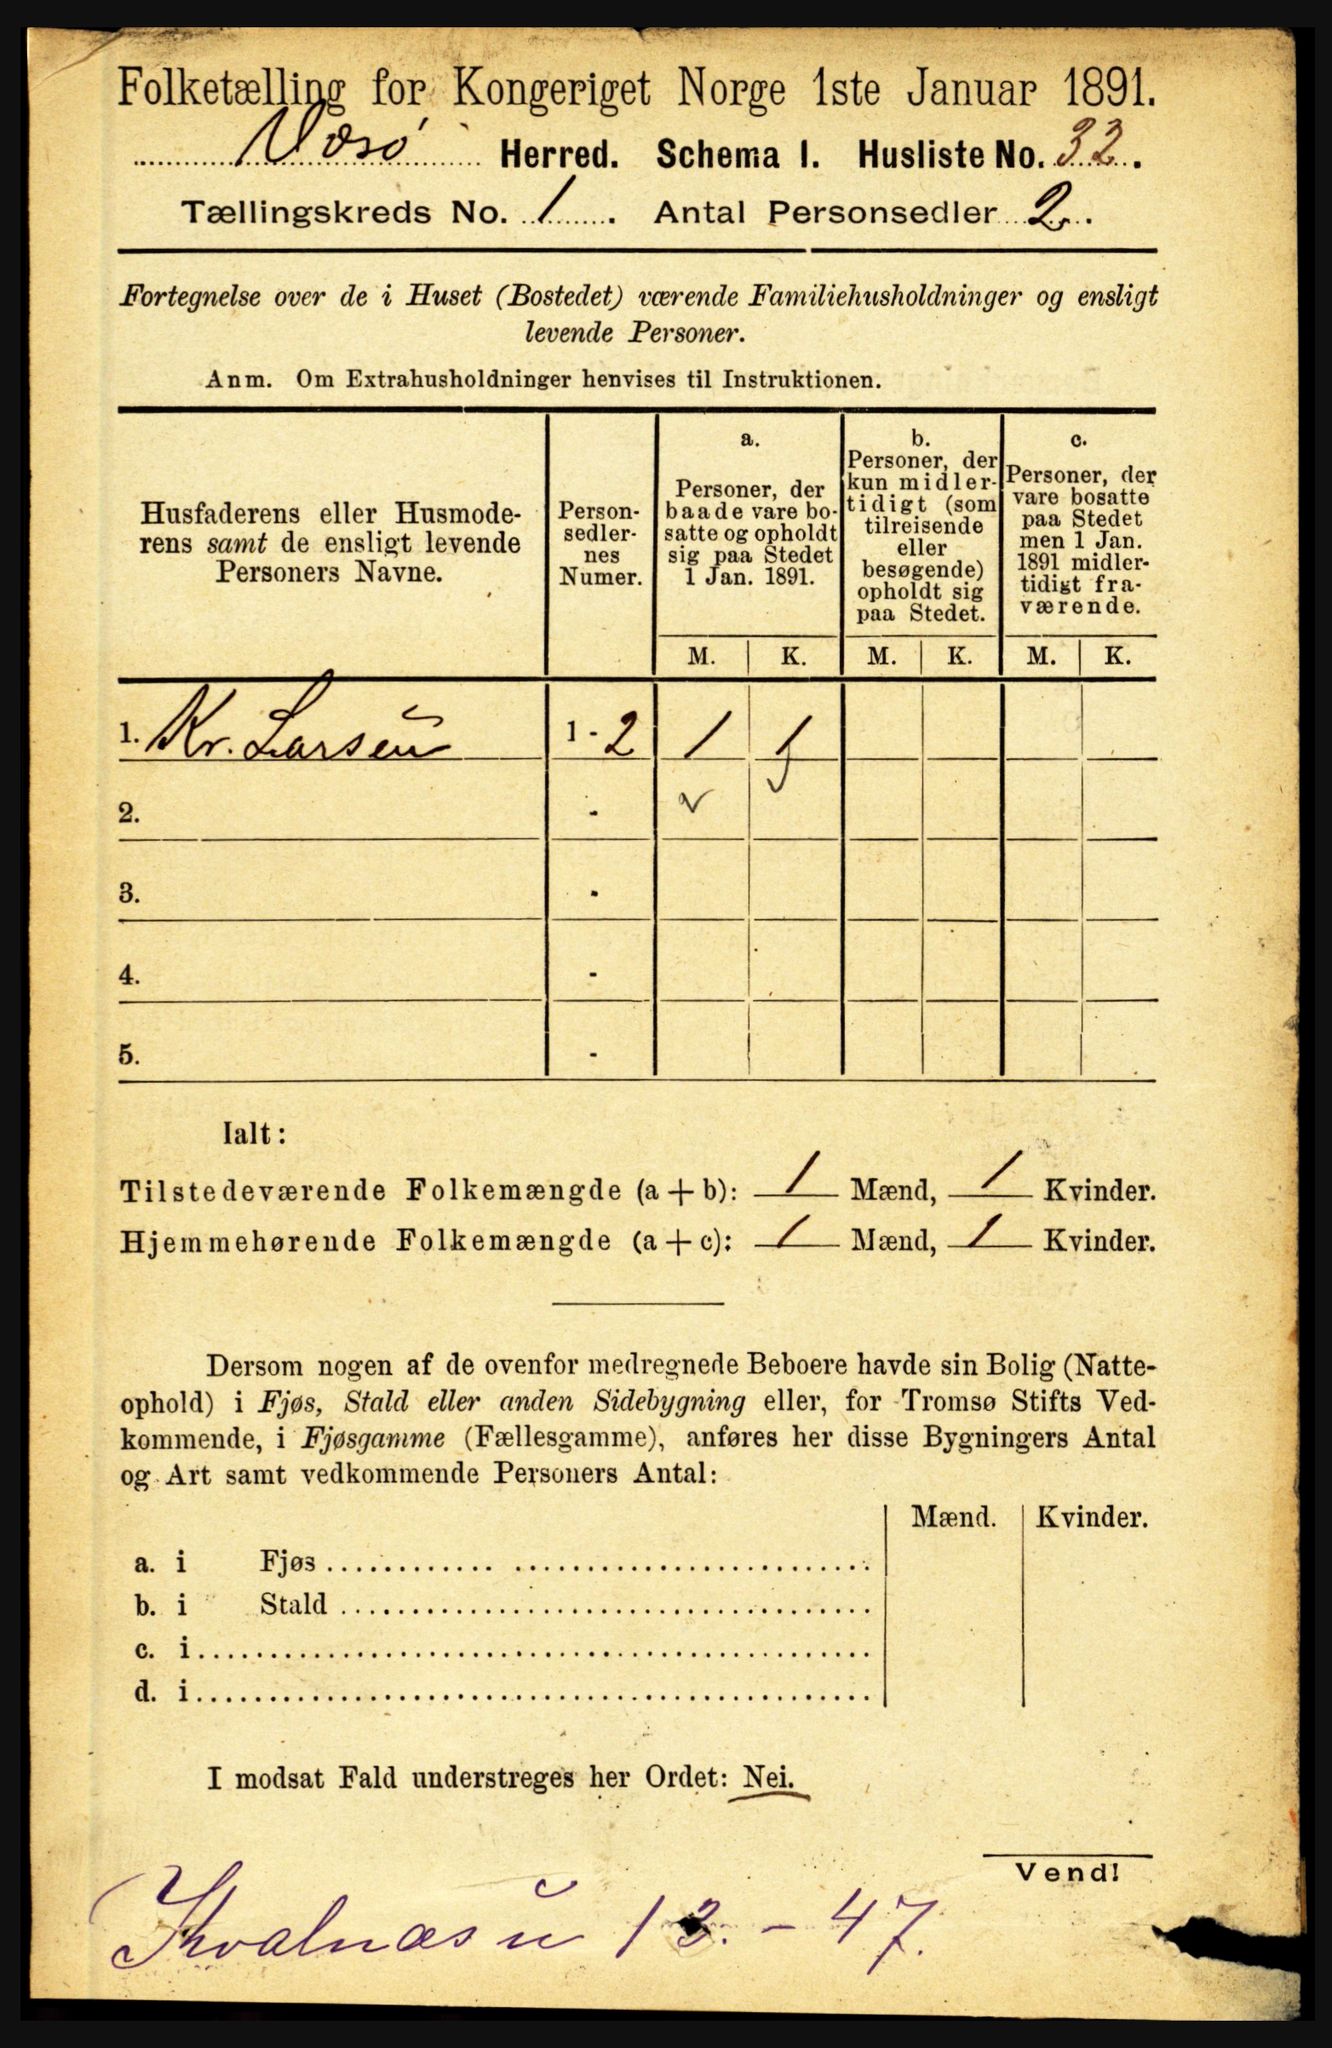 Folketælling for Kongeriget Norge 1ste Januar 1891.
Værø Herred. Schema I. Husliste No. 32.
Tællingskreds No. 1. Antal Personsedler 2.
Fortegnelse over de i Huset (Bostedet) værende Familiehusholdninger og ensligt
levende Personer.
Anm. Om Extrahusholdninger henvises til Instruktionen.
Husfaderens eller Husmode-
rens samt de ensligt levende
Personers Navne.
Person-
sedler-
nes
Numer.
a.
Personer, der
baade vare bo-
satte og opholdt
sig paa Stedet
1 Jan. 1891.
b.
Personer, der
kun midler-
tidigt (som
tilreisende
eller
besøgende)
opholdt sig
paa Stedet.
c.
Personer, der
vare bosatte
paa Stedet
men 1 Jan.
1891 midler-
tidigt fra-
værende.
M. K. M. K. M. K.
1. Kr. Larsen 1 - 2 1 1
2. -
3. -
4. -
5. -
Ialt:
Tilstedeværende Folkemængde (a + b): 1 Mænd, 1 Kvinder.
Hjemmehørende Folkemængde (a + c): 1 Mænd, 1 Kvinder.
Dersom nogen af de ovenfor medregnede Beboere havde sin Bolig (Natte-
ophold) i Fjøs, Stald eller anden Sidebygning eller, for Tromsø Stifts Ved-
kommende, i Fjøsgamme (Fællesgamme), anføres her disse Bygningers Antal
og Art samt vedkommende Personers Antal:
Mænd. Kvinder.
a. i Fjøs
b. i Stald
c. i
d. i
I modsat Fald understreges her Ordet: Nei.
Vend!
Kvalnæs u 13. - 47.